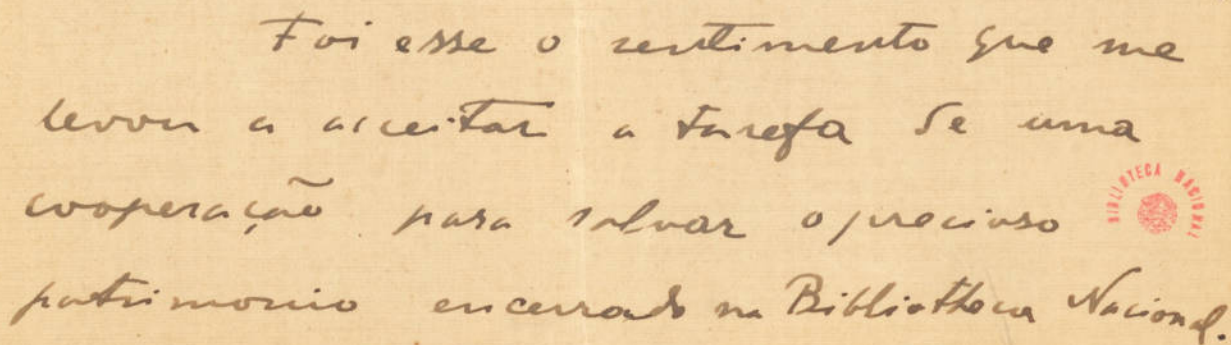 Foi esse o sentimento que me
levou a acceitar a tarefa de uma
cooperação para salvar o precioso
patrimonio encerrado na Bibliotheca Nacional.
BIBLIOTECA NACIONAL